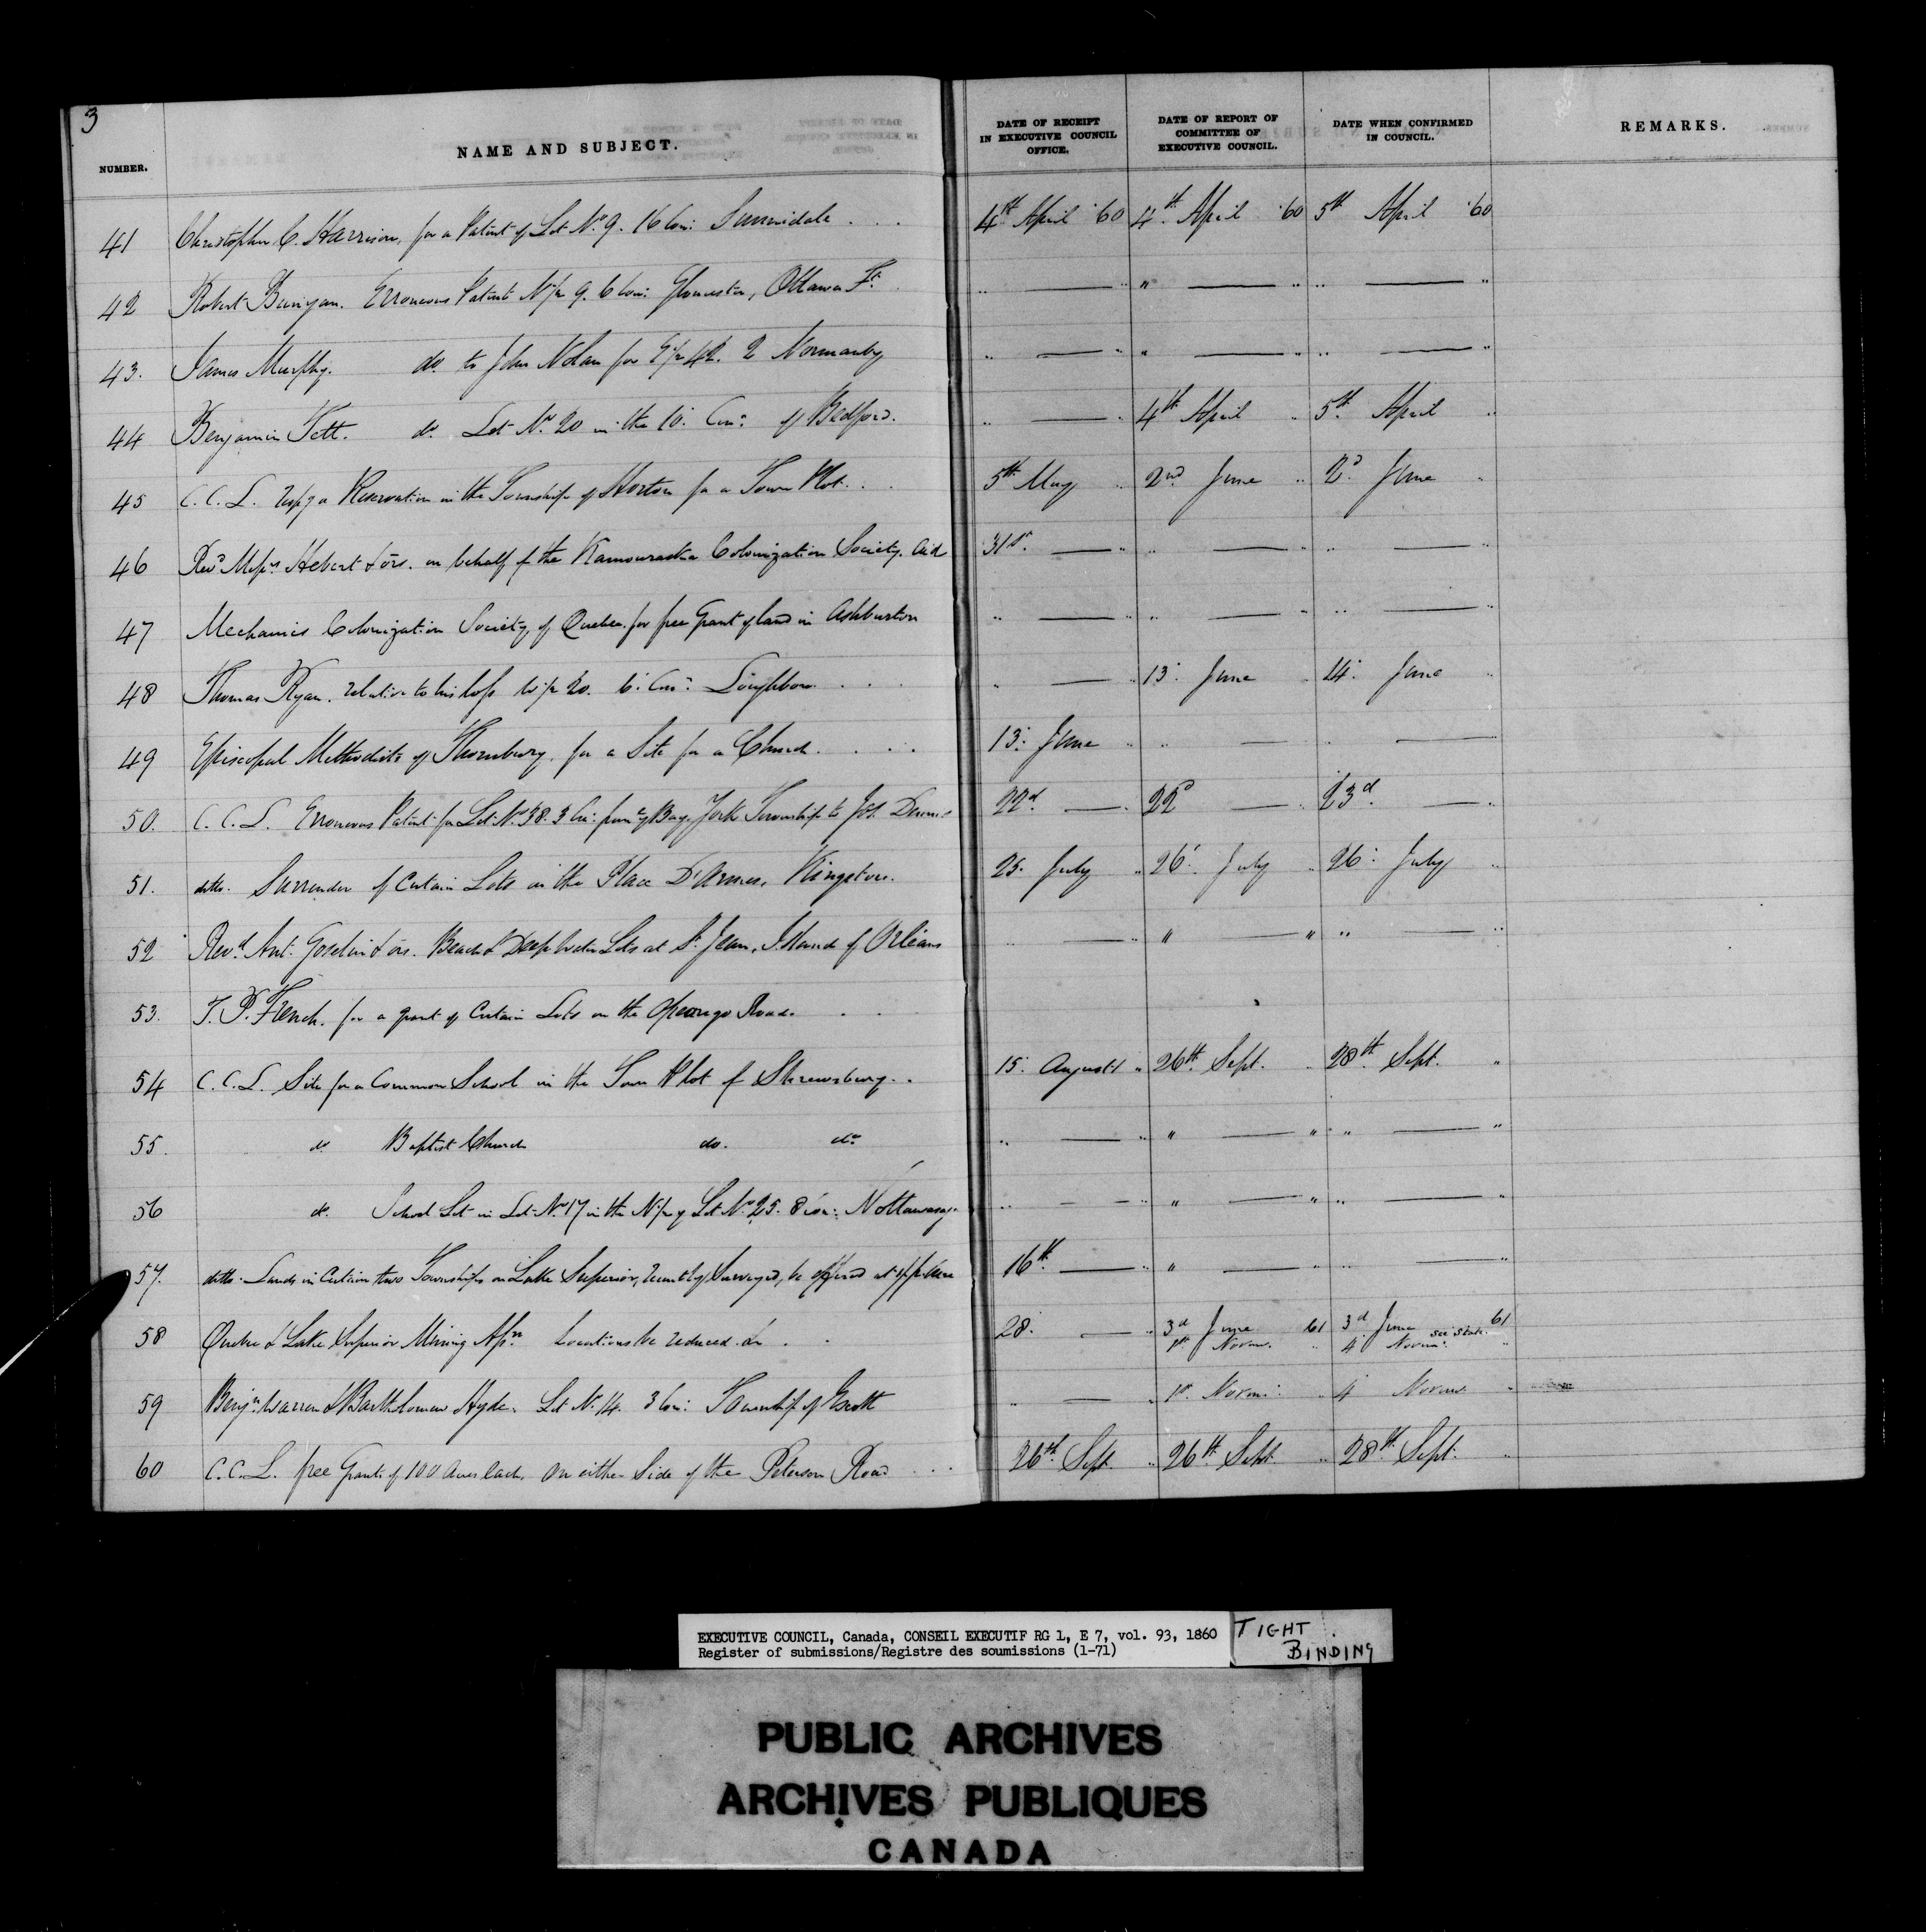 3
NUMBER. NAME AND SUBJECT. DATE OF RECEIPT IN EXECUTIVE COUNCIL OFFICE. DATE OF REPORT OF COMMITTEE OF EXECUTIVE COUNCIL. DATE WHEN CONFIRMED IN COUNCIL. REMARKS.
41 Christopher C. Harrison, for a Patent of Lot No. 9. 16 Con: Sunnidale . . . 4th April '60 4th April '60 5th April '60
42 Robert Bunyan. Erroneous Patent N½ 9. 6 Con: Gloucester, Ottawa Ft. " — " " — " " — "
43. James Murphy. do. to John Nolan for 42. 2 Normanby " — " " — " " — "
44 Benjamin Tett. do. Lot No. 20 in the 10. Con: of Bedford. " — " 4th April " 5th April "
45 C. C. L. resp'g a Reservation in the Township of Horton for a Town Plot. . . 5th May " 2nd June " 2d June "
46 Revd Messrs Hebert & ors. on behalf of the Kamouraska Colonization Society. Aid 31st. — " " — " " — "
47 Mechanics Colonization Society, of Quebec. for free Grant of land in Ashburton " — " " — " " — "
48 Thomas Ryan. relative to his loss W½ 20. 6. Con: Loughboro . . . " — " 13. June " 14. June "
49 Episcopal Methodists of Thornbury. for a Site for a Church. . . . 13. June " " — " — "
50. C. C. L. Erroneous Patent for Lot No. 38. 3 Con: from ye Bay. York Township to Jos. Dennis 22d — " 22d — " 23d. — "
51. ditto. Surrender of Certain Lots in the Place D'Armes, Kingston. 25. July " 26. July " 26. July "
52 Revd. Ant. Goselin & ors. Beach & Deep Water Lots at St. Jean, Island of Orléans " — " " — " " — "
53. T. P. French. for a grant of Certain Lots on the Opeongo Road. . .
54 C. C. L. Site for a Common School in the Town Plot of Shrewsbury. . 15. August " 26th Sept. " 28th Sept. "
55. do. Baptist Church do. do. " — " " — " " — "
56 do. School Lot in Lot No. 17 in the N½ of Lot No. 25. 8 Con: Nottawasaga " — " " — " " — "
57. ditto. Lands in Certain two Townships on Lake Superior, recently Surveyed, be offered at 16th. — " — " " — "
58 Quebec & Lake Superior Mining Assn. Locations be reduced. &c . . 28. — " 3d June 61 3d June 61
1st Novem. " 4 Novem. "
59 Benjn. Warren & Bartholomew Hyde. Lot No. 14. 3 Con: Township of " — " 1st. Novem. " 4 Novem. "
60 C. C. L. free Grants of 100 Acres each, on either Side of the Peterson Road . . . 26th Sept. " 26th Sept. " 28th Sept. "
EXECUTIVE COUNCIL, Canada, CONSEIL EXECUTIF RG 1, E 7, vol. 93, 1860
Register of submissions/Registre des soumissions (1-71)
TIGHT BINDING
PUBLIC ARCHIVES
ARCHIVES PUBLIQUES
CANADA